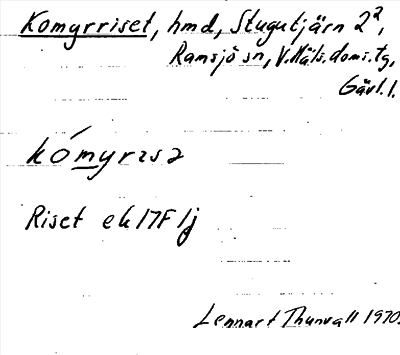 Komyrriset, hmd, Stugutjärn 2²,
Ramsjö sn, V. Häls. doms. tg,
Gävl. l.
kómyrɪsə
Riset ek 17F 1j
Lennart Thunvall 1970.